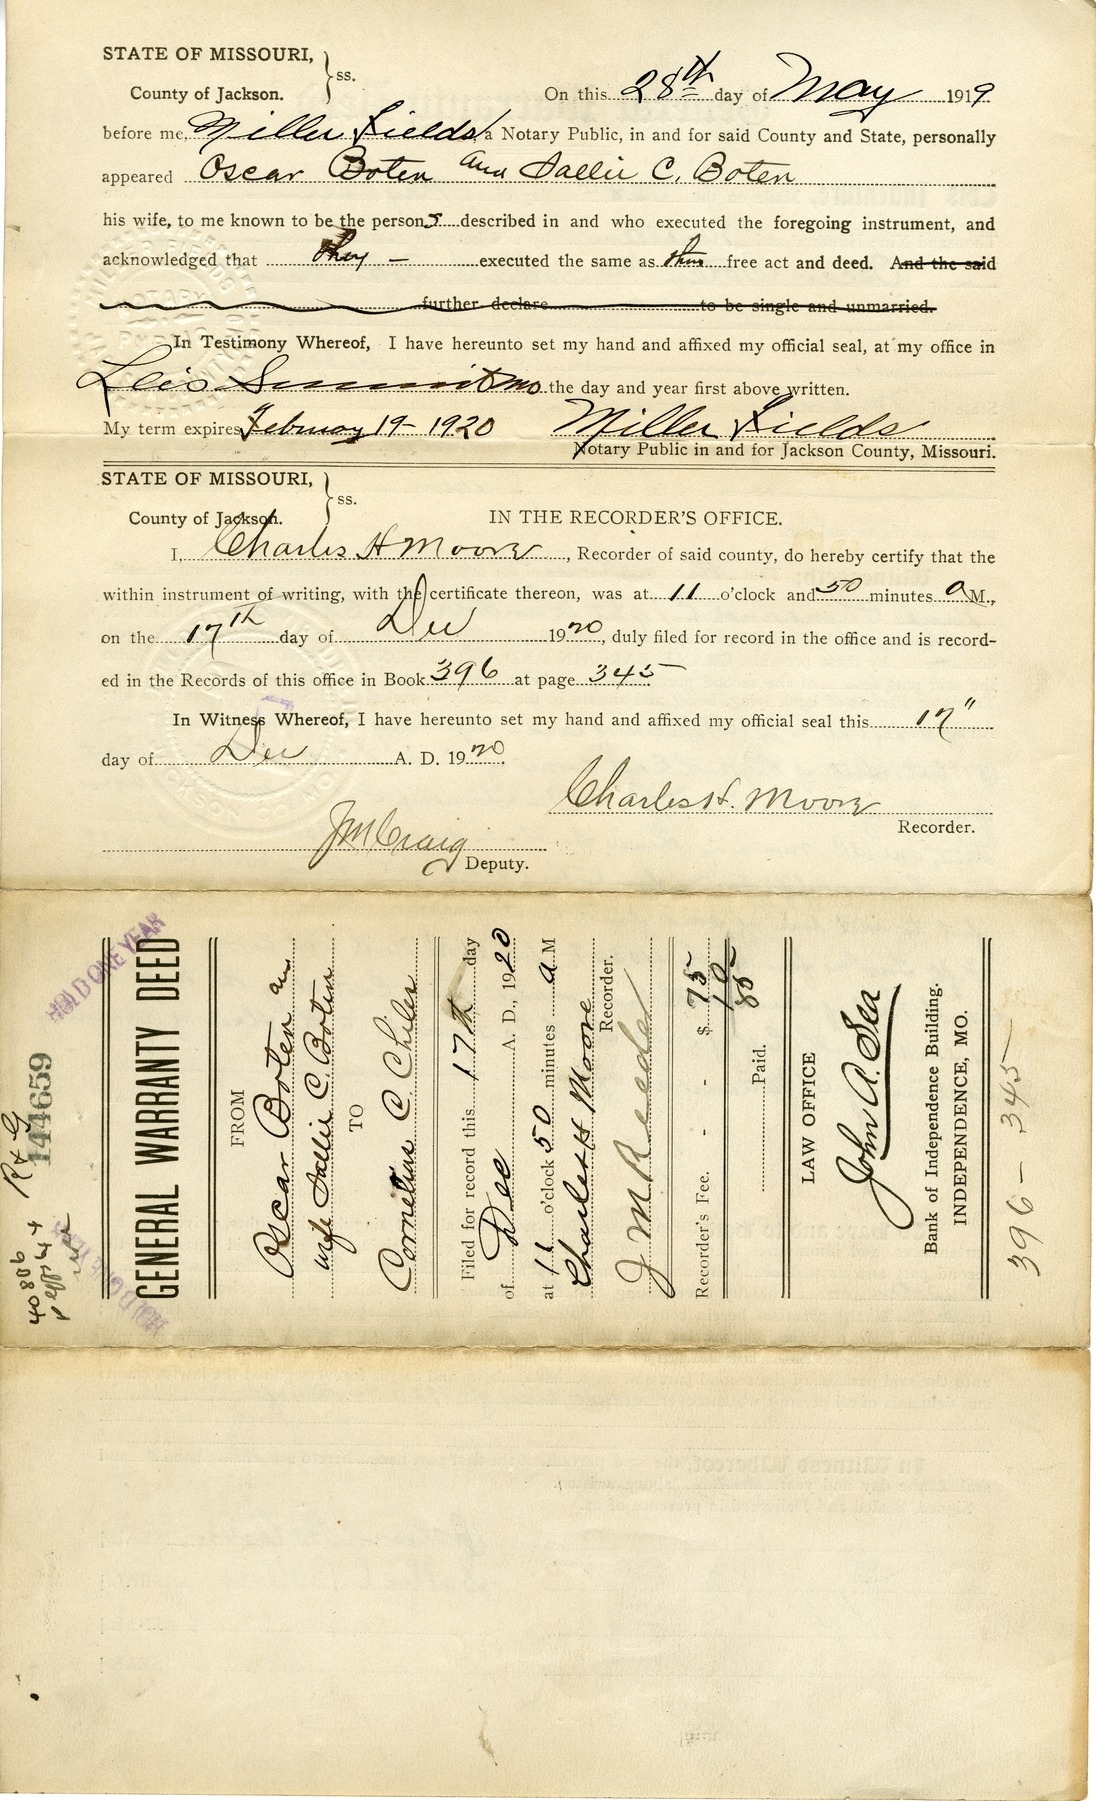 STATE OF MISSOURI,
County of Jackson. } ss.
On this 28th day of May 1919
before me, Miller Fields, a Notary Public, in and for said County and State, personally
appeared Oscar Boten and Sallie C. Boten
his wife, to me known to be the persons described in and who executed the foregoing instrument, and
acknowledged that they executed the same as their free act and deed. And the said
further declare to be single and unmarried.
In Testimony Whereof, I have hereunto set my hand and affixed my official seal, at my office in
Leis Summit Mo the day and year first above written.
My term expires February 19 - 1920 Miller Fields
Notary Public in and for Jackson County, Missouri.
STATE OF MISSOURI,
County of Jackson. } ss.
IN THE RECORDER'S OFFICE.
I, Charles H Moore, Recorder of said county, do hereby certify that the
within instrument of writing, with the certificate thereon, was at 11 o'clock and 50 minutes a M.,
on the 17th day of Dec 1920, duly filed for record in the office and is record-
ed in the Records of this office in Book 396 at page 345
In Witness Whereof, I have hereunto set my hand and affixed my official seal this 17"
day of Dec A. D. 1920.
Charles H. Moore
Recorder.
J M Craig
Deputy.
HOLD ONE YEAR
HOLD ONE YEAR
144659
R + G
40806
GENERAL WARRANTY DEED
FROM
Oscar Boten and
wife Sallie C. Boten
TO
Cornelius C. Chiles
Filed for record this 17th day
of Dec A. D., 1920
at 11 o'clock 50 minutes a M
Charles H Moore
Recorder.
J M Reeder
Recorder's Fee. - - $ 75
10
85
Paid.
LAW OFFICE
John A. Sea
Bank of Independence Building.
INDEPENDENCE, MO.
396 - 345